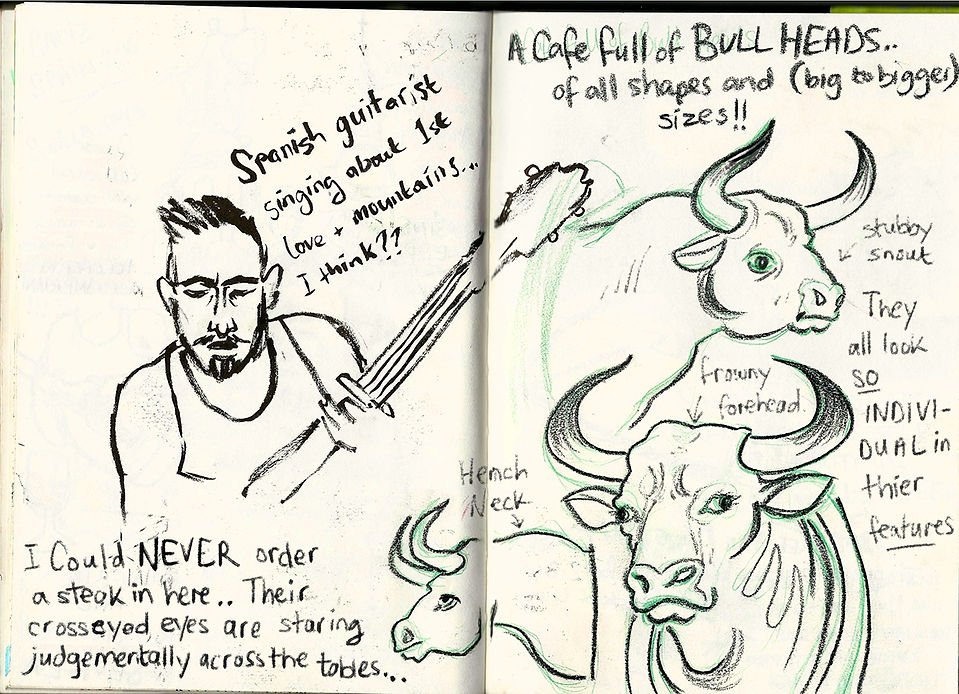 Spanish guitarist
singing about 1st
love + mountains...
I think??
I Could NEVER order
a steak in here.. Their
crosseyed eyes are staring
judgementally across the tables...
A Cafe full of BULL HEADS..
of all shapes and (big to bigger)
sizes!!
stubby
snout
They
all look
SO
INDIVI-
DUAL in
thier
features
frowny
forehead.
Hench
Neck